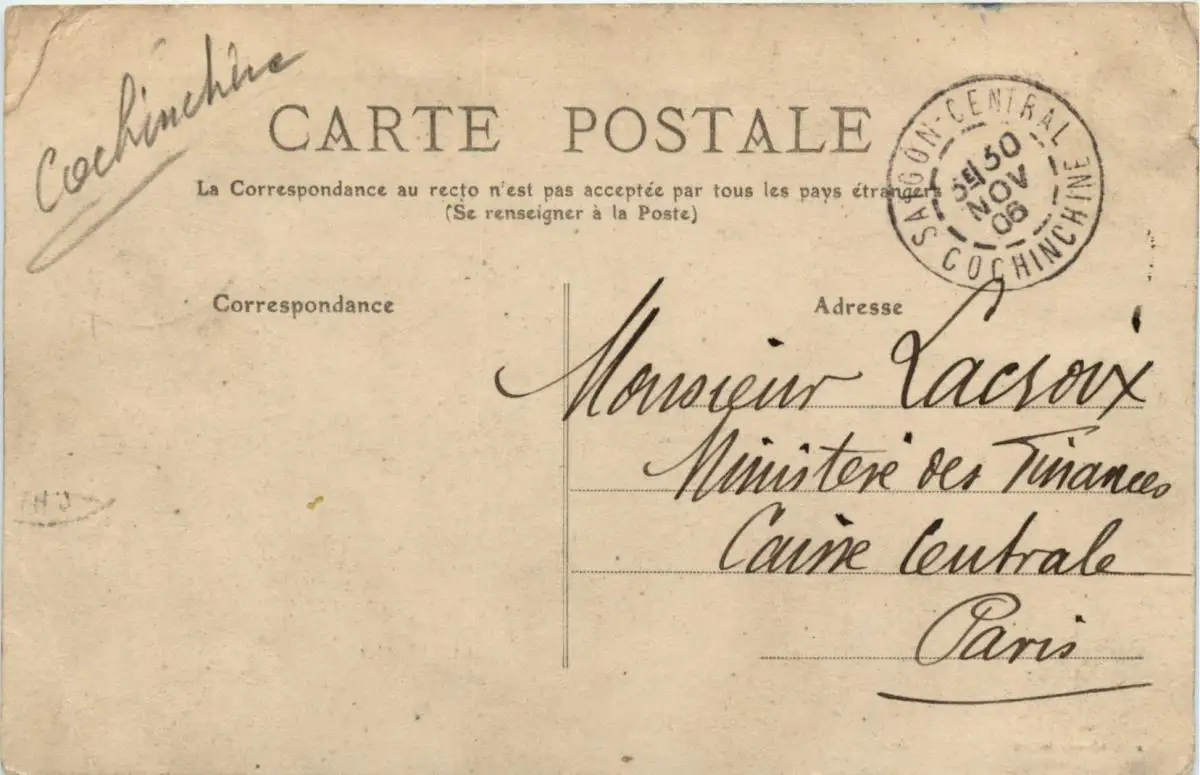 Cochinchine
CARTE POSTALE
La Correspondance au recto n'est pas acceptée par tous les pays étrangers
(Se renseigner à la Poste)
SAIGON-CENTRAL
30
NOV
06
COCHINCHINE
Correspondance
Adresse
Monsieur Lacroix
Ministere des Finances
Caisse Centrale
Paris